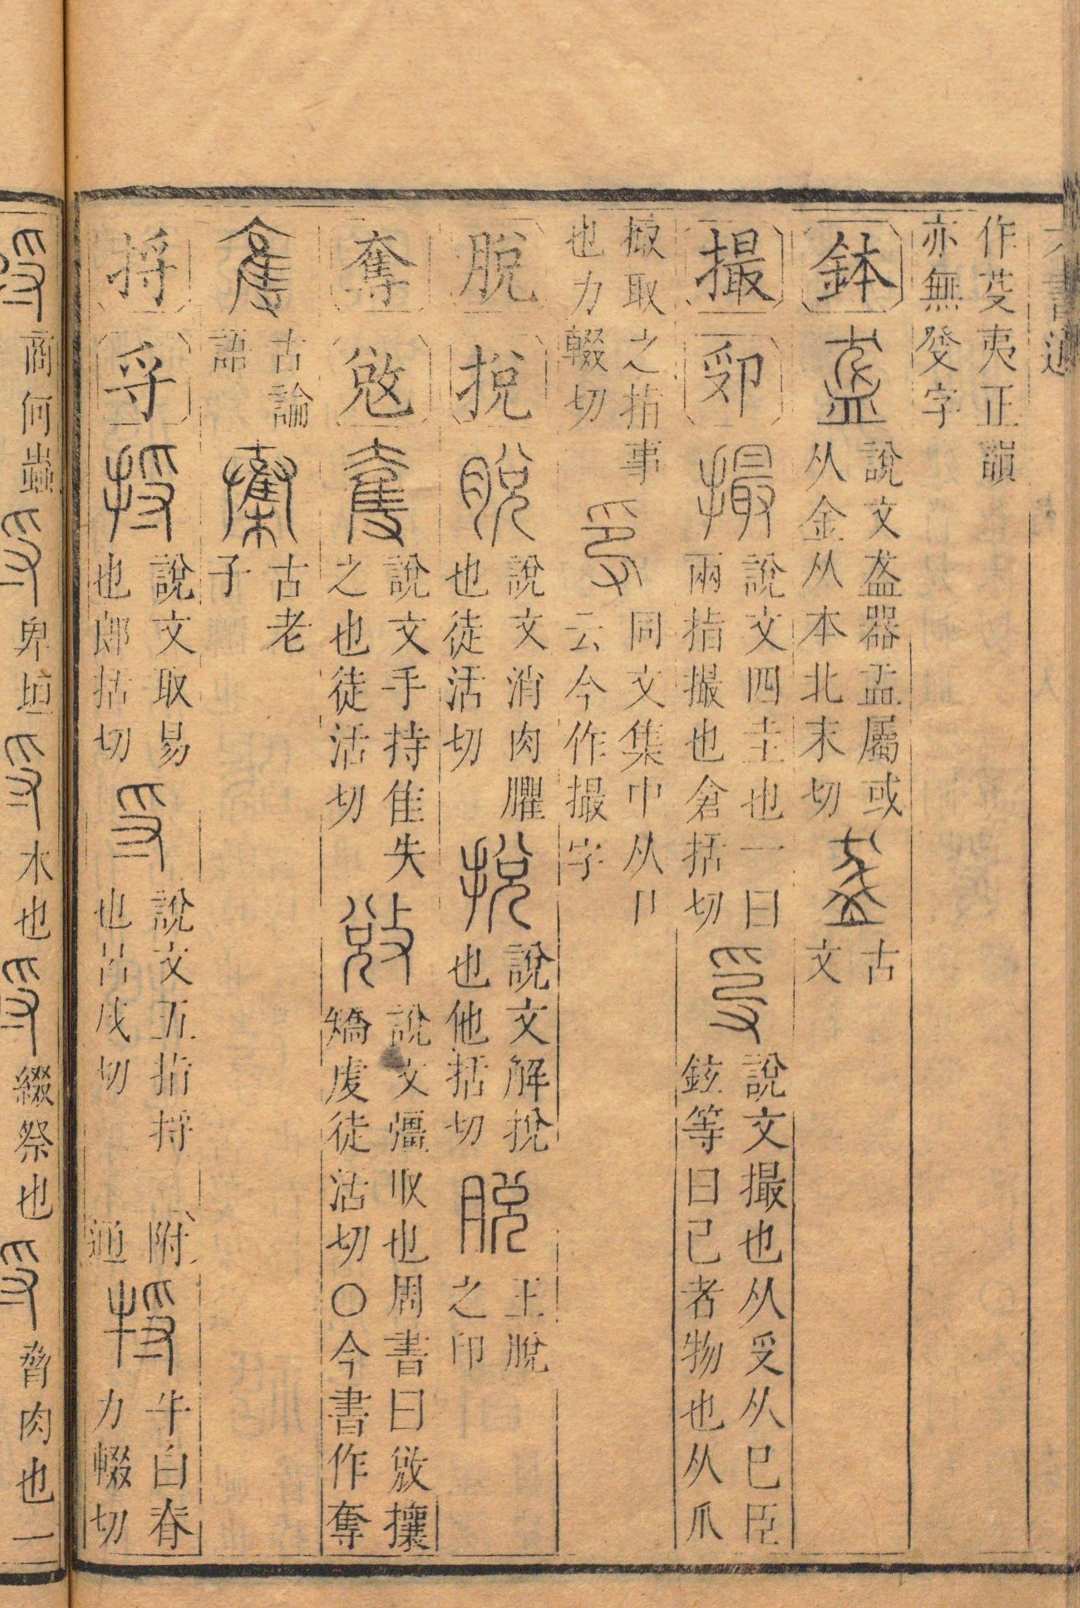 六書通
作茇夷正韻
亦無癹字
鉢
說文盋器盂屬或
从金从本北末切
古
文
撮
說文四圭也一曰
兩指撮也倉括切
說文撮也从受从巳臣
鉉等曰已者物也从爪
掫取之指事
也力輟切
同文集中从卩
云今作撮字
脫
捝
說文消肉臞
也徒活切
說文解捝
也他括切
王脫
之印
奪
敓
說文手持隹失
之也徒活切
說文彊取也周書曰敓攘
矯虔徒活切○今書作奪
古論
語
古老
子
捋
寽
說文取易
也郎括切
說文五指捋
也呂戌切
附
通
牛白脊
力輟切
商何蟲
卑垣
水也
綴祭也
脅肉也一